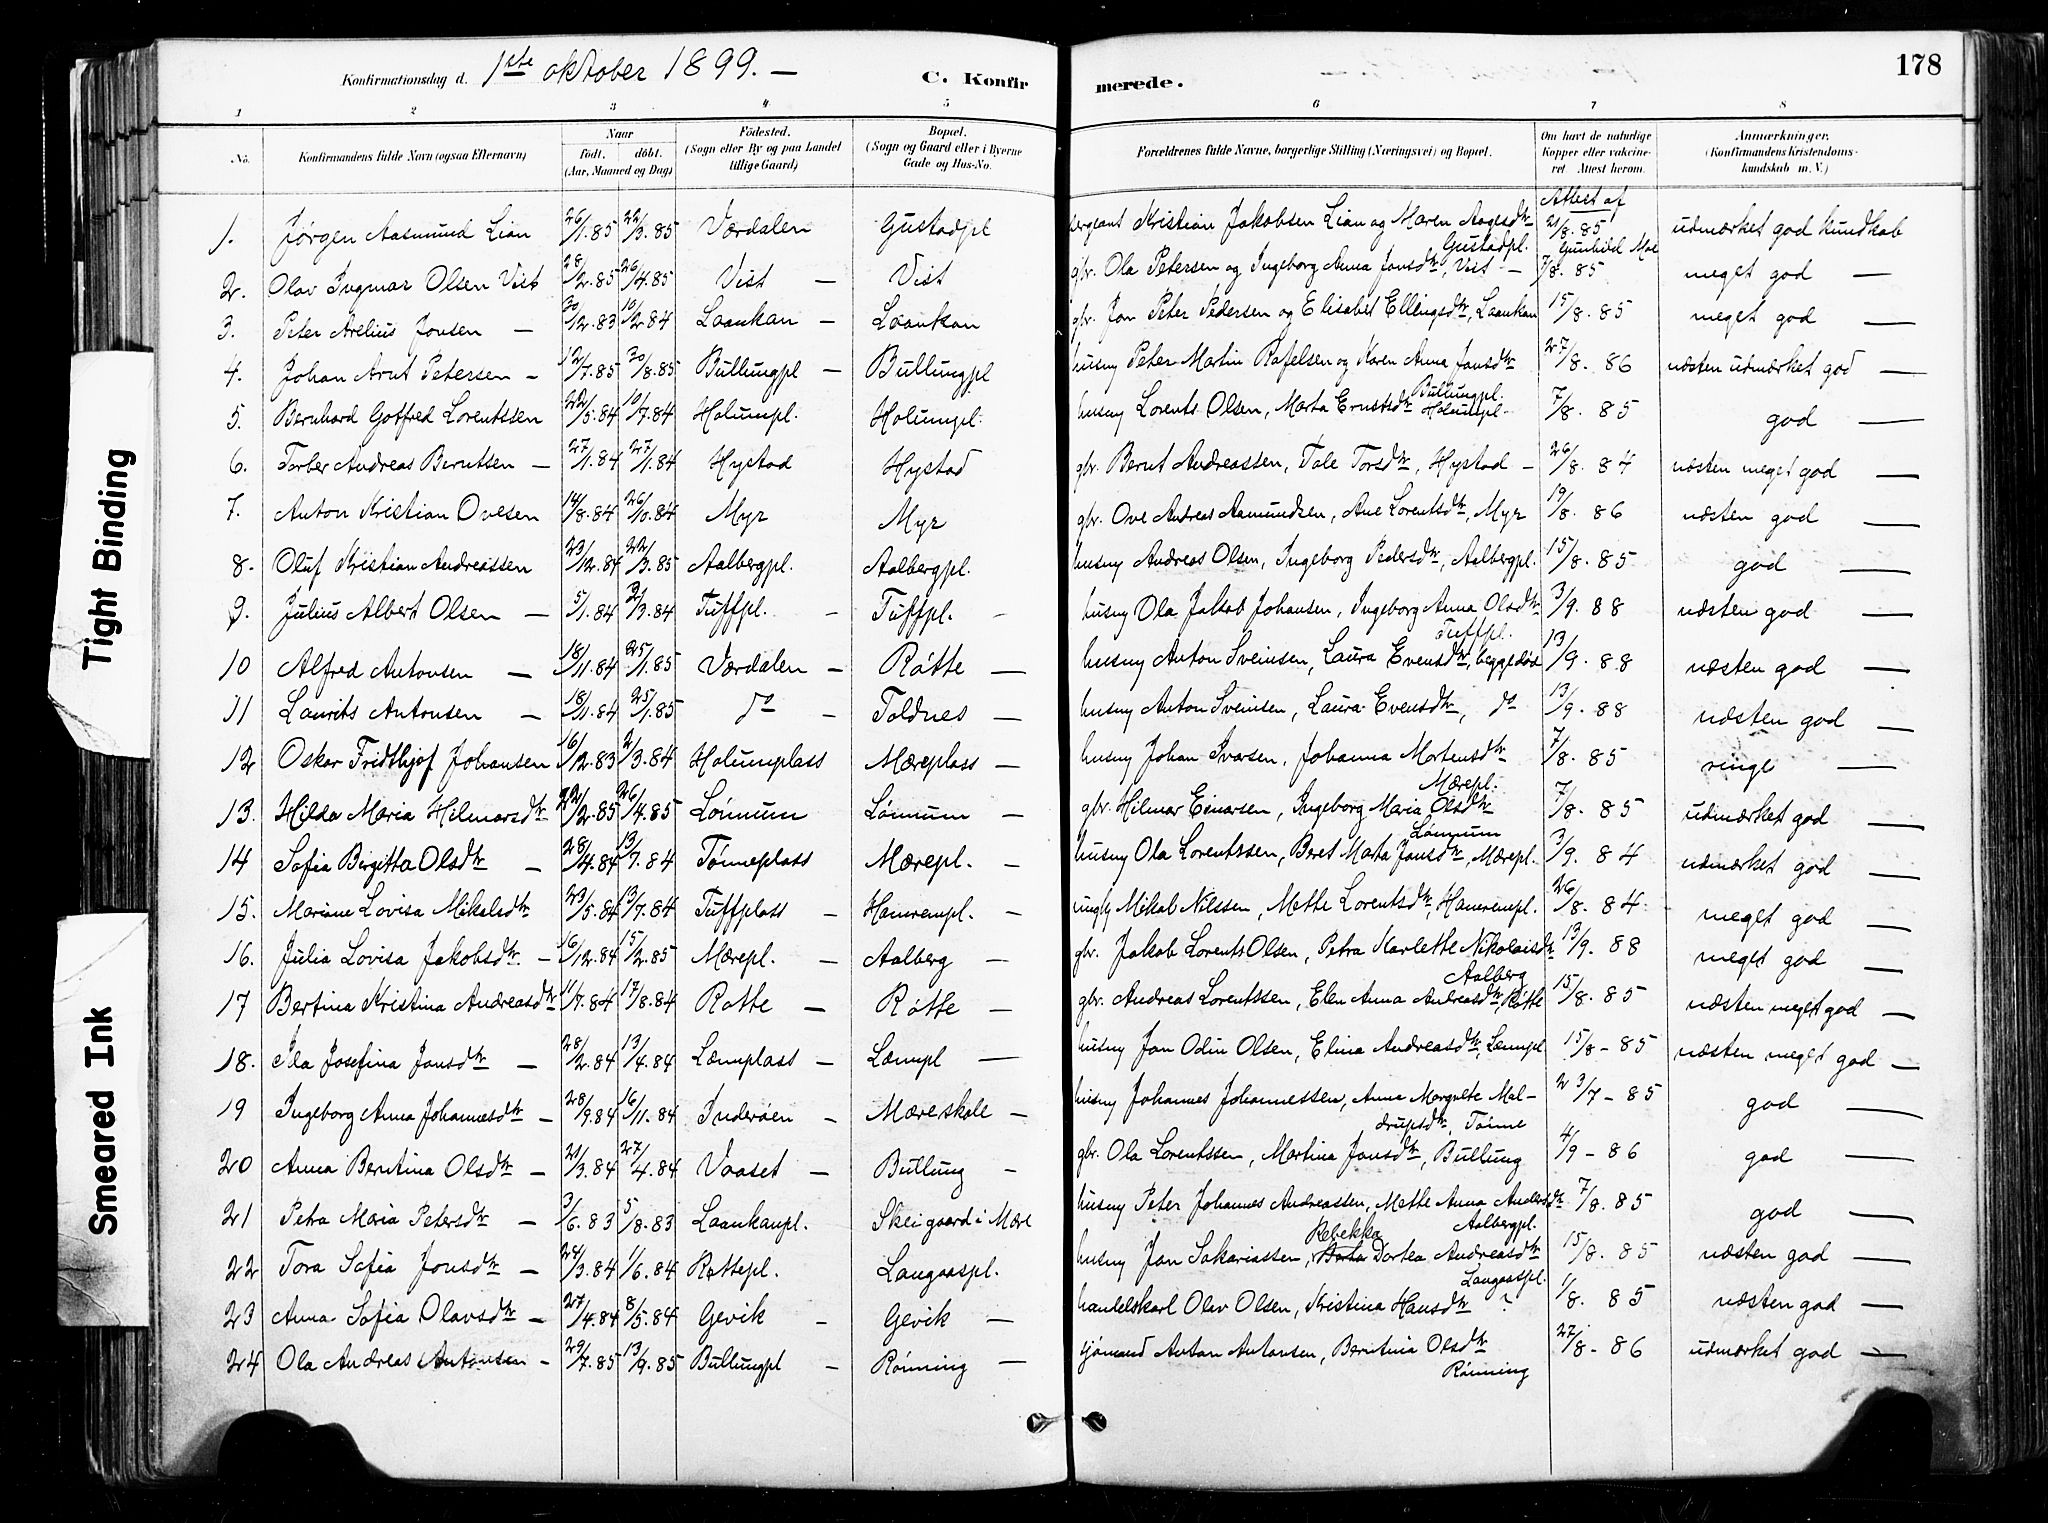 178
Konfirmationsdag d. 1ste oktober 1899. —
C. Konfirmerede.
1 2 3 4 5 6 7 8
No. Konfirmandens fulde Navn (ogsaa Efternavn) Naar födt, döbt. (Aar, Maaned og Dag) Födested. (Sogn eller By og paa Landet tillige Gaard) Bopæl. (Sogn og Gaard eller i Byerne Gade og Hus-No. Forældrenes fulde Navne, borgerlige Stilling (Næringsvei) og Bopæl. Om havt de naturlige Kopper eller vakcineret Attest herom. Anmærkninger. (Konfirmandens Kristendomskundskab m. V.)
Attest af
1. Jørgen Aasmund Lian 26/1.85 22/3.85 Værdalen Gustadpl sergeant Kristian Jakobsen Lian og Maren Aagesdtr Gustadpl. 21/8.85 Gunhild Moe udmærket god kundskab
2. Olav Ingmar Olsen Vist 28/2.85 26/4.85 Vist — Vist gbr. Ola Petersen og Ingeborg Anna Jonsdtr, Vist — 7/8.85 meget god —
3. Peter Arelius Jonsen — 30/12.83 10/2 84 Laankan — Laankan gbr. Jon Peter Pedersen og Elisabet Ellingsdtr, Laankan 15/8.85 meget god —
4. Johan Arnt Petersen — 12/7.85 30/8.85 Bullungpl — Bullungpl husmg Peter Martin Rafelsen og Karen Anna Jonsdtr Bullungpl. 27/8. 86 næsten udmærket god —
5. Bernhard Gotfred Lorentssen 22/5.84 10/7.84 Holumpl. Holumpl. husmg Lorents Olsen, Marta Ernstsdtr Holumpl. 7/8. 85 god —
6. Torber Andreas Berntsen — 27/1.84 27/1.84 Hystad Hystad gbr. Bernt Andreassen, Tale Torsdtr, Hystad — 26/8. 84 næsten meget god —
7. Anton Kristian Ovesen 14/8.84 26/10.84 Myr Myr gbr. Ove Andreas Aamundsen, Ane Lorentsdtr, Myr 19/8. 86 næsten god —
8. Oluf Kristian Andreassen 23/12.84 22/3.85 Aalbergpl. Aalbergpl. husmg Andreas Olsen, Ingeborg Pedersdtr, Aalbergpl. 15/8.85 god —
9. Julius Albert Olsen — 5/1.84 2/3.84 Tuffpl. — Tuffpl. — husmg Ola Jakob Johansen, Ingeborg Anna Olsdtr Tuffpl. 3/9. 88 næsten god —
10 Alfred Antonsen — 18/11.84 25/1.85 Værdalen — Røtte — husmg Anton Sveinsen, Laura Evensdtr, begge døde 13/9. 88 næsten god —
11 Laurits Antonsen — 18/11.84 25/1.85 do — Toldnes — husmg Anton Sveinsen, Laura Evensdtr, do 13/9. 88 næsten god —
12 Oskar Fridthjof Johansen 16/12.83 2/3.84 Holumplass Mæreplass — husmg Johan Ivarsen, Johanna Mortensdtr Mærepl. 7/8.85 ringe —
13. Hilda Maria Hilmarsdtr 22/2.85 26/4.85 Lönnum Lönnum — gbr. Hilmar Einarsen, Ingeborg Maria Olsdtr Lönnum 7/8. 85 udmærket god —
14 Sofia Birgitta Olsdtr — 28/4.84 13/7.84 Tønneplass Mærepl. — husmg Ola Lorentssen, Beret Marta Jonsdtr, Mærepl. 3/9. 84 udmærket god —
15. Mariane Lovisa Mikalsdtr 23/5.84 13/7.84 Tuffplass — Hamrempl. — Mikal Nilssen, Mette Lorentsdtr, Hamrempl. 26/8. 84 meget god —
16. Julia Lovisa Jakobsdtr. — 16/12.84 15/2.85 Mærepl. — Aalberg — gbr. Jakob Lorents Olsen, Petra Karlette Nikolaisdtr Aalberg 13/9. 88 meget god —
17 Bertina Kristina Andreasdtr 11/7.84 17/8.84 Rotte — Røtte — gbr. Andreas Lorentssen, Elen Anna Andreasdtr, Røtte 15/8.85 næsten meget god —
18. Ida Josefina Jonsdtr — 28/2.84 13/4.84 Læmplass — Læmpl — husmg Jon Odin Olsen, Elina Andreasdtr, Læmpl 15/8 – 85 næsten meget god —
19 Ingeborg Anna Johannesdtr — 28/9.84 16/11.84 Inderøen — Mæreskole — husmg Johannes Johannessen, Anna Margrete Maldrupsdtr, Tønne 23/7 – 85 god —
20 Anna Berntina Olsdtr — 21/3.84 27/4.84 Vaaset — Bullung — gbr. Ola Lorentssen, Martina Jonsdtr, Bullung 4/9 – 86 god —
21 Petra Maria Petersdtr — 3/6.83 5/8.83 Laankanpl. Skeigaard i Mære husmg Peter Johannes Andreassen, Mette Anna Andersdtr Aalbergpl. 7/8.85 god —
22 Tora Sofia Jonsdtr — 24/3.84 1/6.84 Røttepl. Langaaspl. husmg Jon Sakariassen, Rebekka Dortea Andreasdtr Langaaspl. 15/8. 85 næsten god —
23 Anna Sofia Olavsdtr — 27/4.84 8/5.84 Gevik — Gevik — handelskarl Olav Olsen, Kristina Hansdtr ? 1/8. 85 næsten god —
24 Ola Andreas Antonsen — 29/7.85 13/9.85 Bullungpl — Rønning — sjømand Anton Antonsen, Berntina Olsdtr Rønning 27/8 – 86 udmærket god —
Tight Binding
Smeared Ink